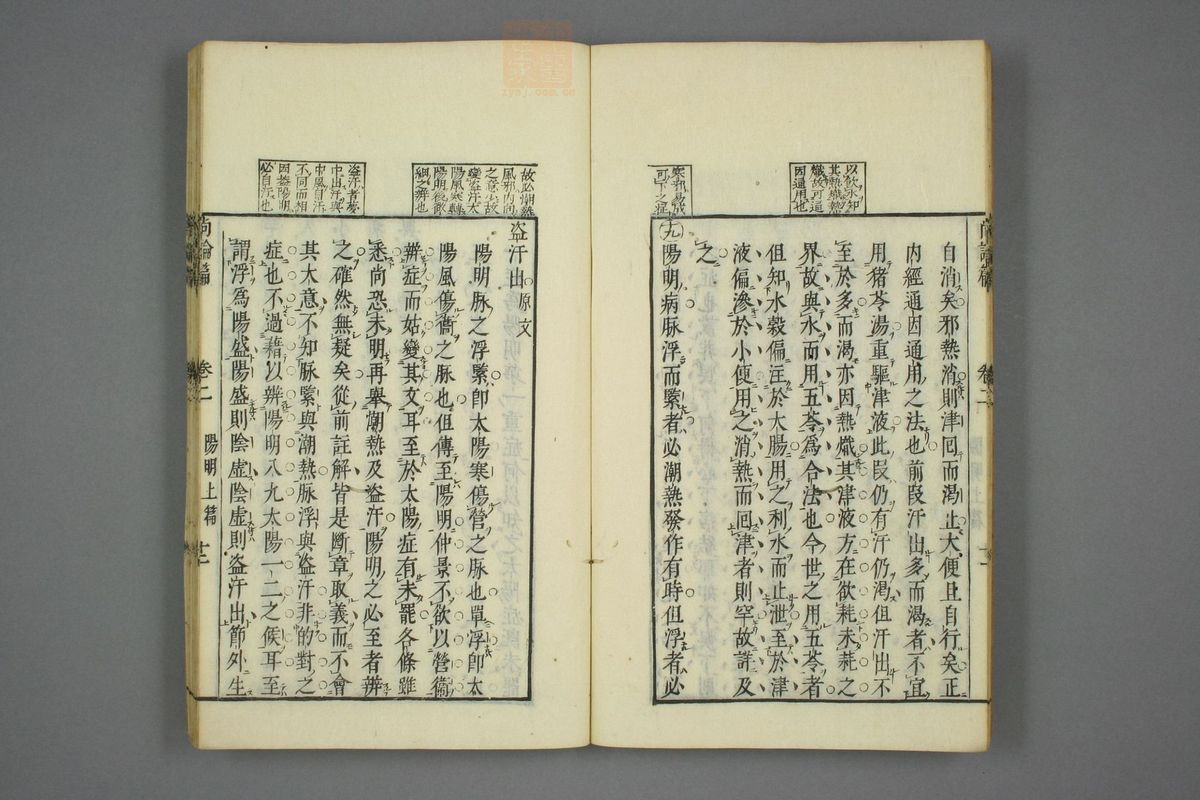 以飲水知
其熱熾熱
熾故可通
因通用也
寒邪易成
可下之症
自消矣邪熱消則津回而渴止大便且自行矣正
內經通因通用之法也前段汗出多而渴者不宜
用猪苓湯重驅津液此段仍有汗仍渴但汗出不
至於多而渴亦因熱熾其津液方在欲耗未耗之
界故與水而用五苓為合法也今世之用五苓者
但知水穀偏注於大腸用之利水而止泄至於津
液偏滲於小便用之消熱而回津者則罕故詳及
之
九陽明病脉浮而緊者必潮熱發作有時但浮者必
尚論篇
卷二
陽明上篇
故必潮熱
風邪內向
之意也故
變盜汗太
陽風寒轉
陽明後歌
綱之辨也
盜汗者夢
中出汗與
中風自汗
不同而相
因蓋陽明
必自汗也
盜汗出原文
陽明脉之浮緊卽太陽寒傷營之脉也單浮卽太
陽風傷衞之脉也但傳至陽明仲景不欲以營衞
辨症而姑變其文耳至於太陽症有未罷各條雖
悉尚恐未明再舉潮熱及盜汗陽明之必至者辨
之確然無疑矣從前註解皆是斷章取義而不會
其大意不知脉緊與潮熱脉浮與盜汗非的對之
症也不過藉以辨陽明八九太陽一二之候耳至
謂浮為陽盛陽盛則陰虛陰虛則盜汗出節外生
尚論篇
卷二
陽明上篇